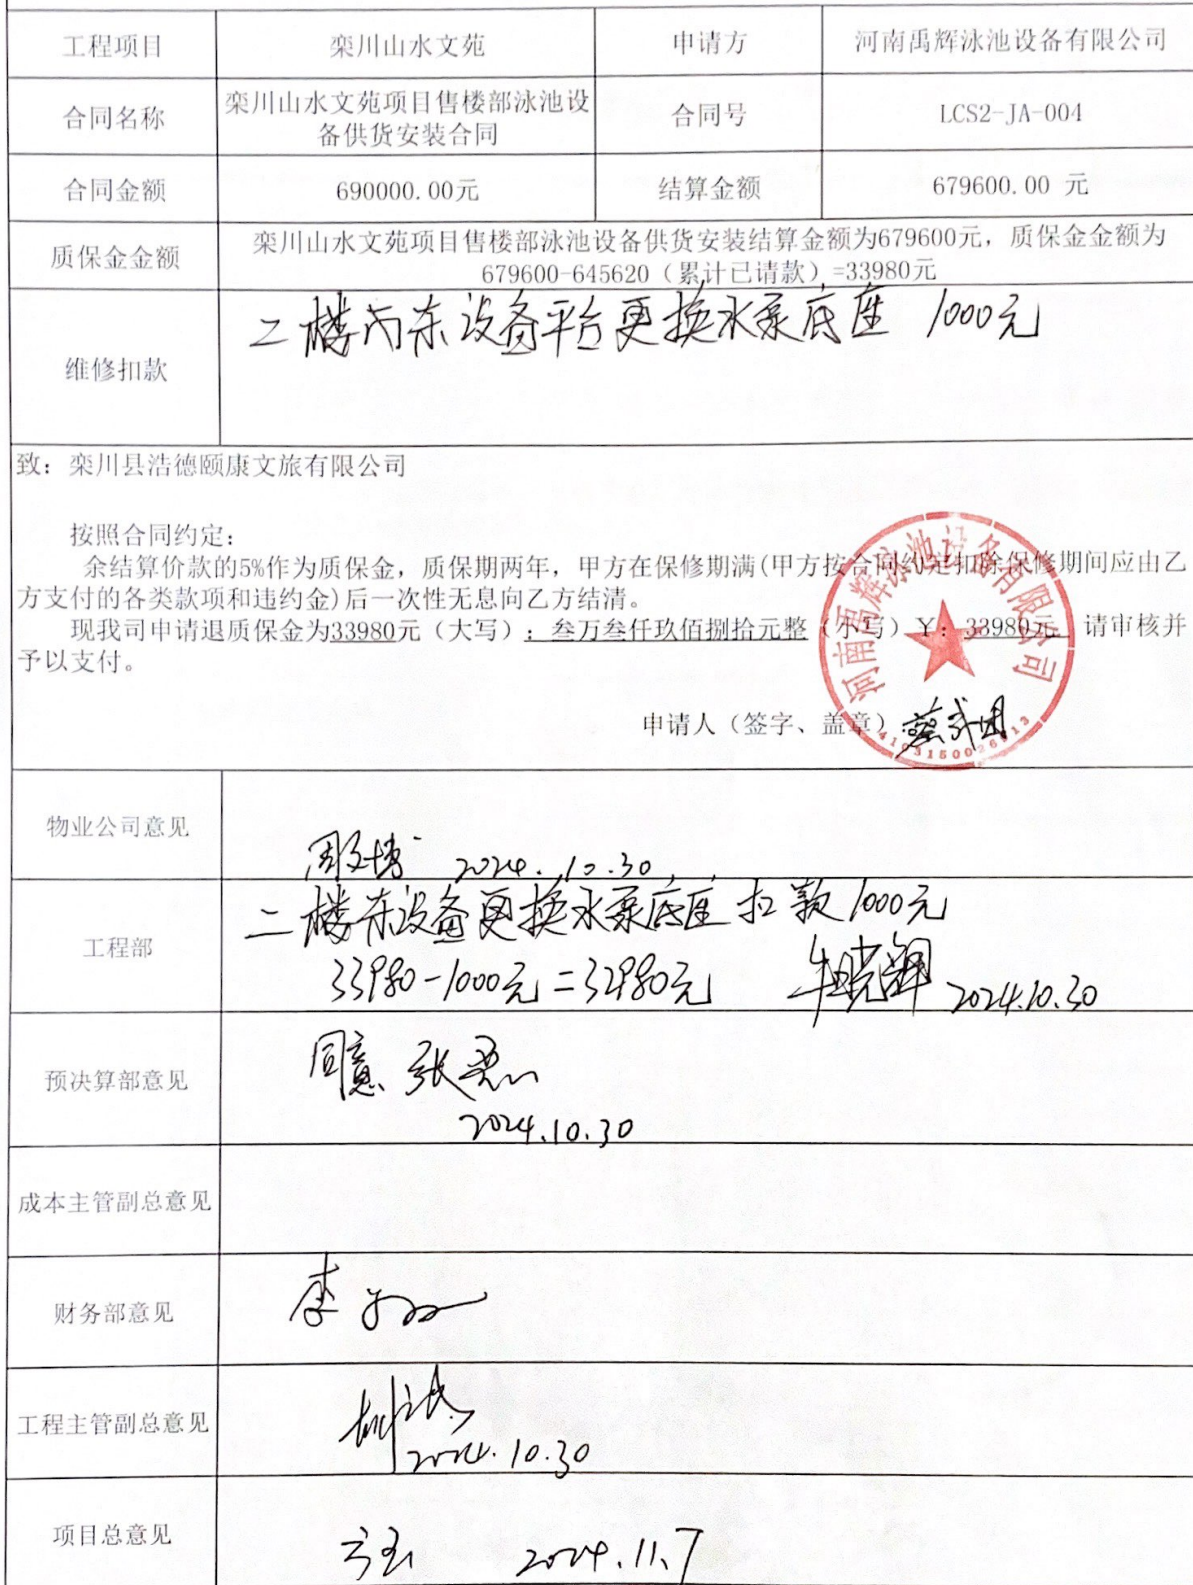 工程项目 栾川山水文苑 申请方 河南禹辉泳池设备有限公司
合同名称 栾川山水文苑项目售楼部泳池设
备供货安装合同 合同号 LCS2-JA-004
合同金额 690000.00元 结算金额 679600.00 元
质保金金额 栾川山水文苑项目售楼部泳池设备供货安装结算金额为679600元，质保金金额为
679600-645620（累计已请款）=33980元
维修扣款 二楼内东设备平台更换水泵底座 1000元
致：栾川县浩德颐康文旅有限公司
按照合同约定：
余结算价款的5%作为质保金，质保期两年，甲方在保修期满(甲方按合同约定扣除保修期间应由乙
方支付的各类款项和违约金)后一次性无息向乙方结清。
现我司申请退质保金为33980元（大写）：叁万叁仟玖佰捌拾元整（小写）￥：33980元 请审核并
予以支付。
河南禹辉泳池设备有限公司
申请人（签字、盖章）
物业公司意见 2024.10.30
工程部 二楼东设备更换水泵底座扣款1000元
33980-1000元=32980元 牛晓辉 2024.10.30
预决算部意见 同意 张
2024.10.30
成本主管副总意见
财务部意见 李
工程主管副总意见
2024.10.30
项目总意见 2024.11.7